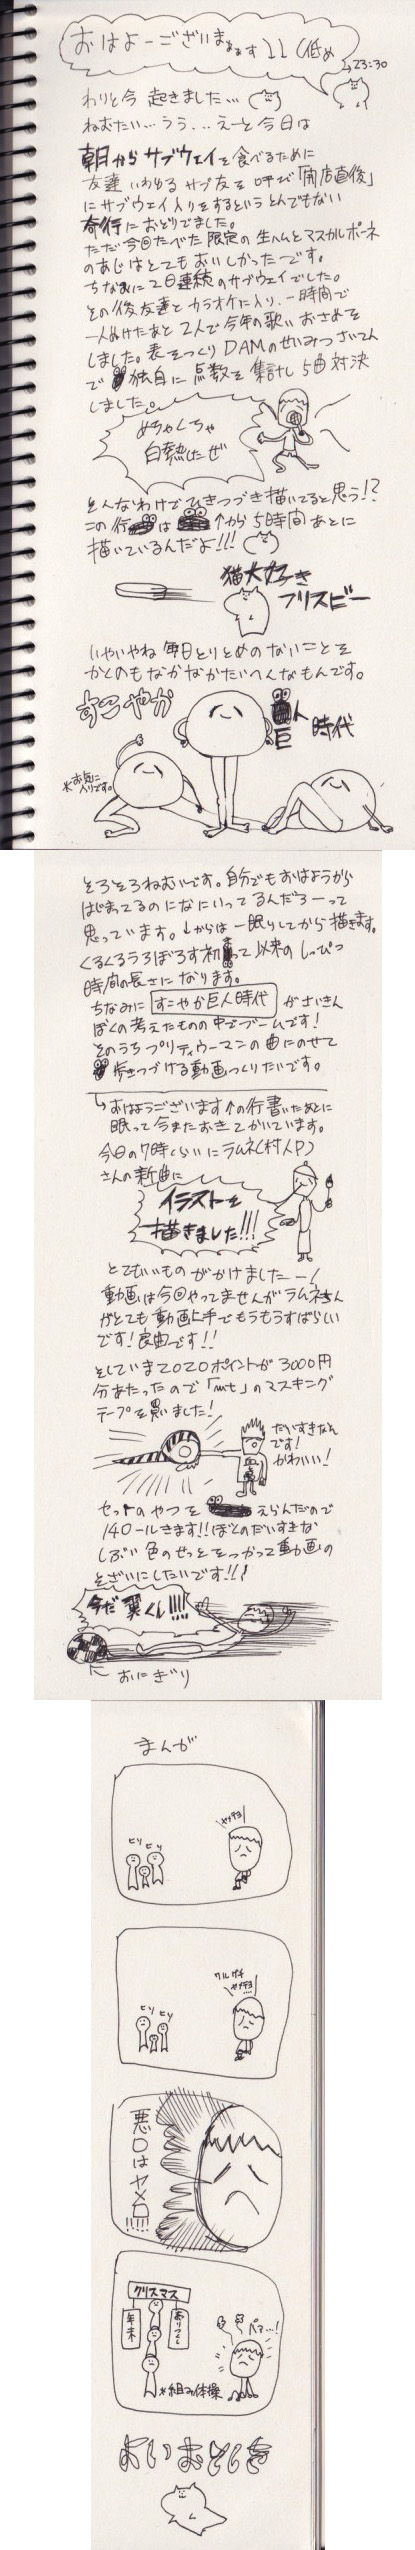 おはよーございまぁぁす↓↓(低め
23:30
わりと今 起きました…
ねむたい…うう…えーと今日は
朝からサブウェイを食べるために
友達 いわゆる サブ友を 呼び「開店直後」
にサブウェイ入りをするというとんでもない
奇行におどりでました。
ただ今回たべた限定の生ハムとマスカルポーネ
のあじはとてもおいしかったーです。
ちなみに2日連続のサブウェイでした。
その後友達とカラオケに入り、一時間で
一人ぬけたあと 2人で今年の歌いおさめを
しました。表をつくり DAMのせいみつさいてん
で 独自に 点数を 集計し 5曲対決
しました。
めちゃくちゃ
白熱したぜ
そんなわけでひきつづき描いてると思う!?
この行は ↑から 5時間あとに
描いているんだよ!!!
猫大好き
フリスビー
いやいやね 毎日とりとめのないことを
かくのもなかなかたいへんなもんです。
すこやか
巨人時代
※お気に入りです。
そろそろねむいです。自分でもおはようから
はじまってるのになにいってるんだろーって
思っています。↓からは一眠りしてから描きます。
くるくるうろぼろす初 って以来のしっぴつ
時間の長さになります。
ちなみに すこやか巨人時代 がさいきん
ぼくの考えたものの中でブームです!
そのうちプリティウーマンの曲にのせて
歩きつづける動画つくりたいです。
↳おはようございます↑の行書いたあとに
眠って今またおきてかいています。
今日の7時くらいにラムネ(村人P)
さんの新曲に
イラストを
描きました!!!
とてもいいものがかけましたー!
動画は今回やってませんがラムネさん
がとても動画上手でもうもうすばらしい
です!良曲です!!
そしていまZOZOポイントが3000円
分あたったので「mt」のマスキング
テープを買いました!
だいすきなん
です!
かわいい!
セットのやつを えらんだので
14ロールきます!!ぼくのだいすきな
しぶい色のせっとをつかって動画の
そざいにしたいです!!!
今だ翼くん!!!!
おにぎり
まんが
ヤメテヨ
ヒソ
ヒソ
ワルグチ
ヤメテヨ
ヒソ
ヒソ
悪口はヤメロ!!!!
クリスマス
年末
ありがとう
パァ…!
※組み体操
よいおとしを